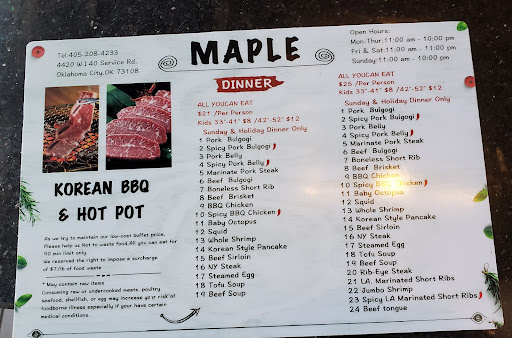 Tel:405-208-4233
4420 W I 40 Service Rd.
Oklahoma City,OK 73108
MAPLE
DINNER
Open Hours:
Mon-Thur:11:00 am - 10:00 pm
Fri & Sat:11:00 am - 11:00 pm
Sunday:11:00 am - 10:00 pm
KOREAN BBQ
& HOT POT
As we try to maintain our low-cost buffet price,
Please help us Not to waste food.All you can eat for
90 min limit only.
we reserved the right to impose a surcharge
of $7/lb of food waste
* May contain raw items
Consuming raw or undercooked meats, poultry,
seafood, shellfish, or egg may increase your risk of
foodborne illness especially if your have certain
medical conditions.
ALL YOUCAN EAT
$21 /Per Person
Kids 33"-41" $8 /42"-52" $12
Sunday & Holiday Dinner Only
1 Pork Bulgogi
2 Spicy Pork Bulgogi
3 Pork Belly
4 Spicy Pork Belly
5 Marinate Pork Steak
6 Beef Bulgogi
7 Boneless Short Rib
8 Beef Brisket
9 BBQ Chicken
10 Spicy BBQ Chicken
11 Baby Octopus
12 Squid
13 Whole Shrimp
14 Korean Style Pancake
15 Beef Sirloin
16 NY Steak
17 Steamed Egg
18 Tofu Soup
19 Beef Soup
ALL YOUCAN EAT
$25 /Per Person
Kids 33"-41" $8 /42"-52" $12
Sunday & Holiday Dinner Only
1 Pork Bulgogi
2 Spicy Pork Bulgogi
3 Pork Belly
4 Spicy Pork Belly
5 Marinate Pork Steak
6 Beef Bulgogi
7 Boneless Short Rib
8 Beef Brisket
9 BBQ Chicken
10 Spicy BBQ Chicken
11 Baby Octopus
12 Squid
13 Whole Shrimp
14 Korean Style Pancake
15 Beef Sirloin
16 NY Steak
17 Steamed Egg
18 Tofu Soup
19 Beef Soup
20 Rib-Eye Steak
21 LA. Marinated Short Ribs
22 Jumbo Shrimp
23 Spicy LA Marinated Short Ribs
24 Beef tongue